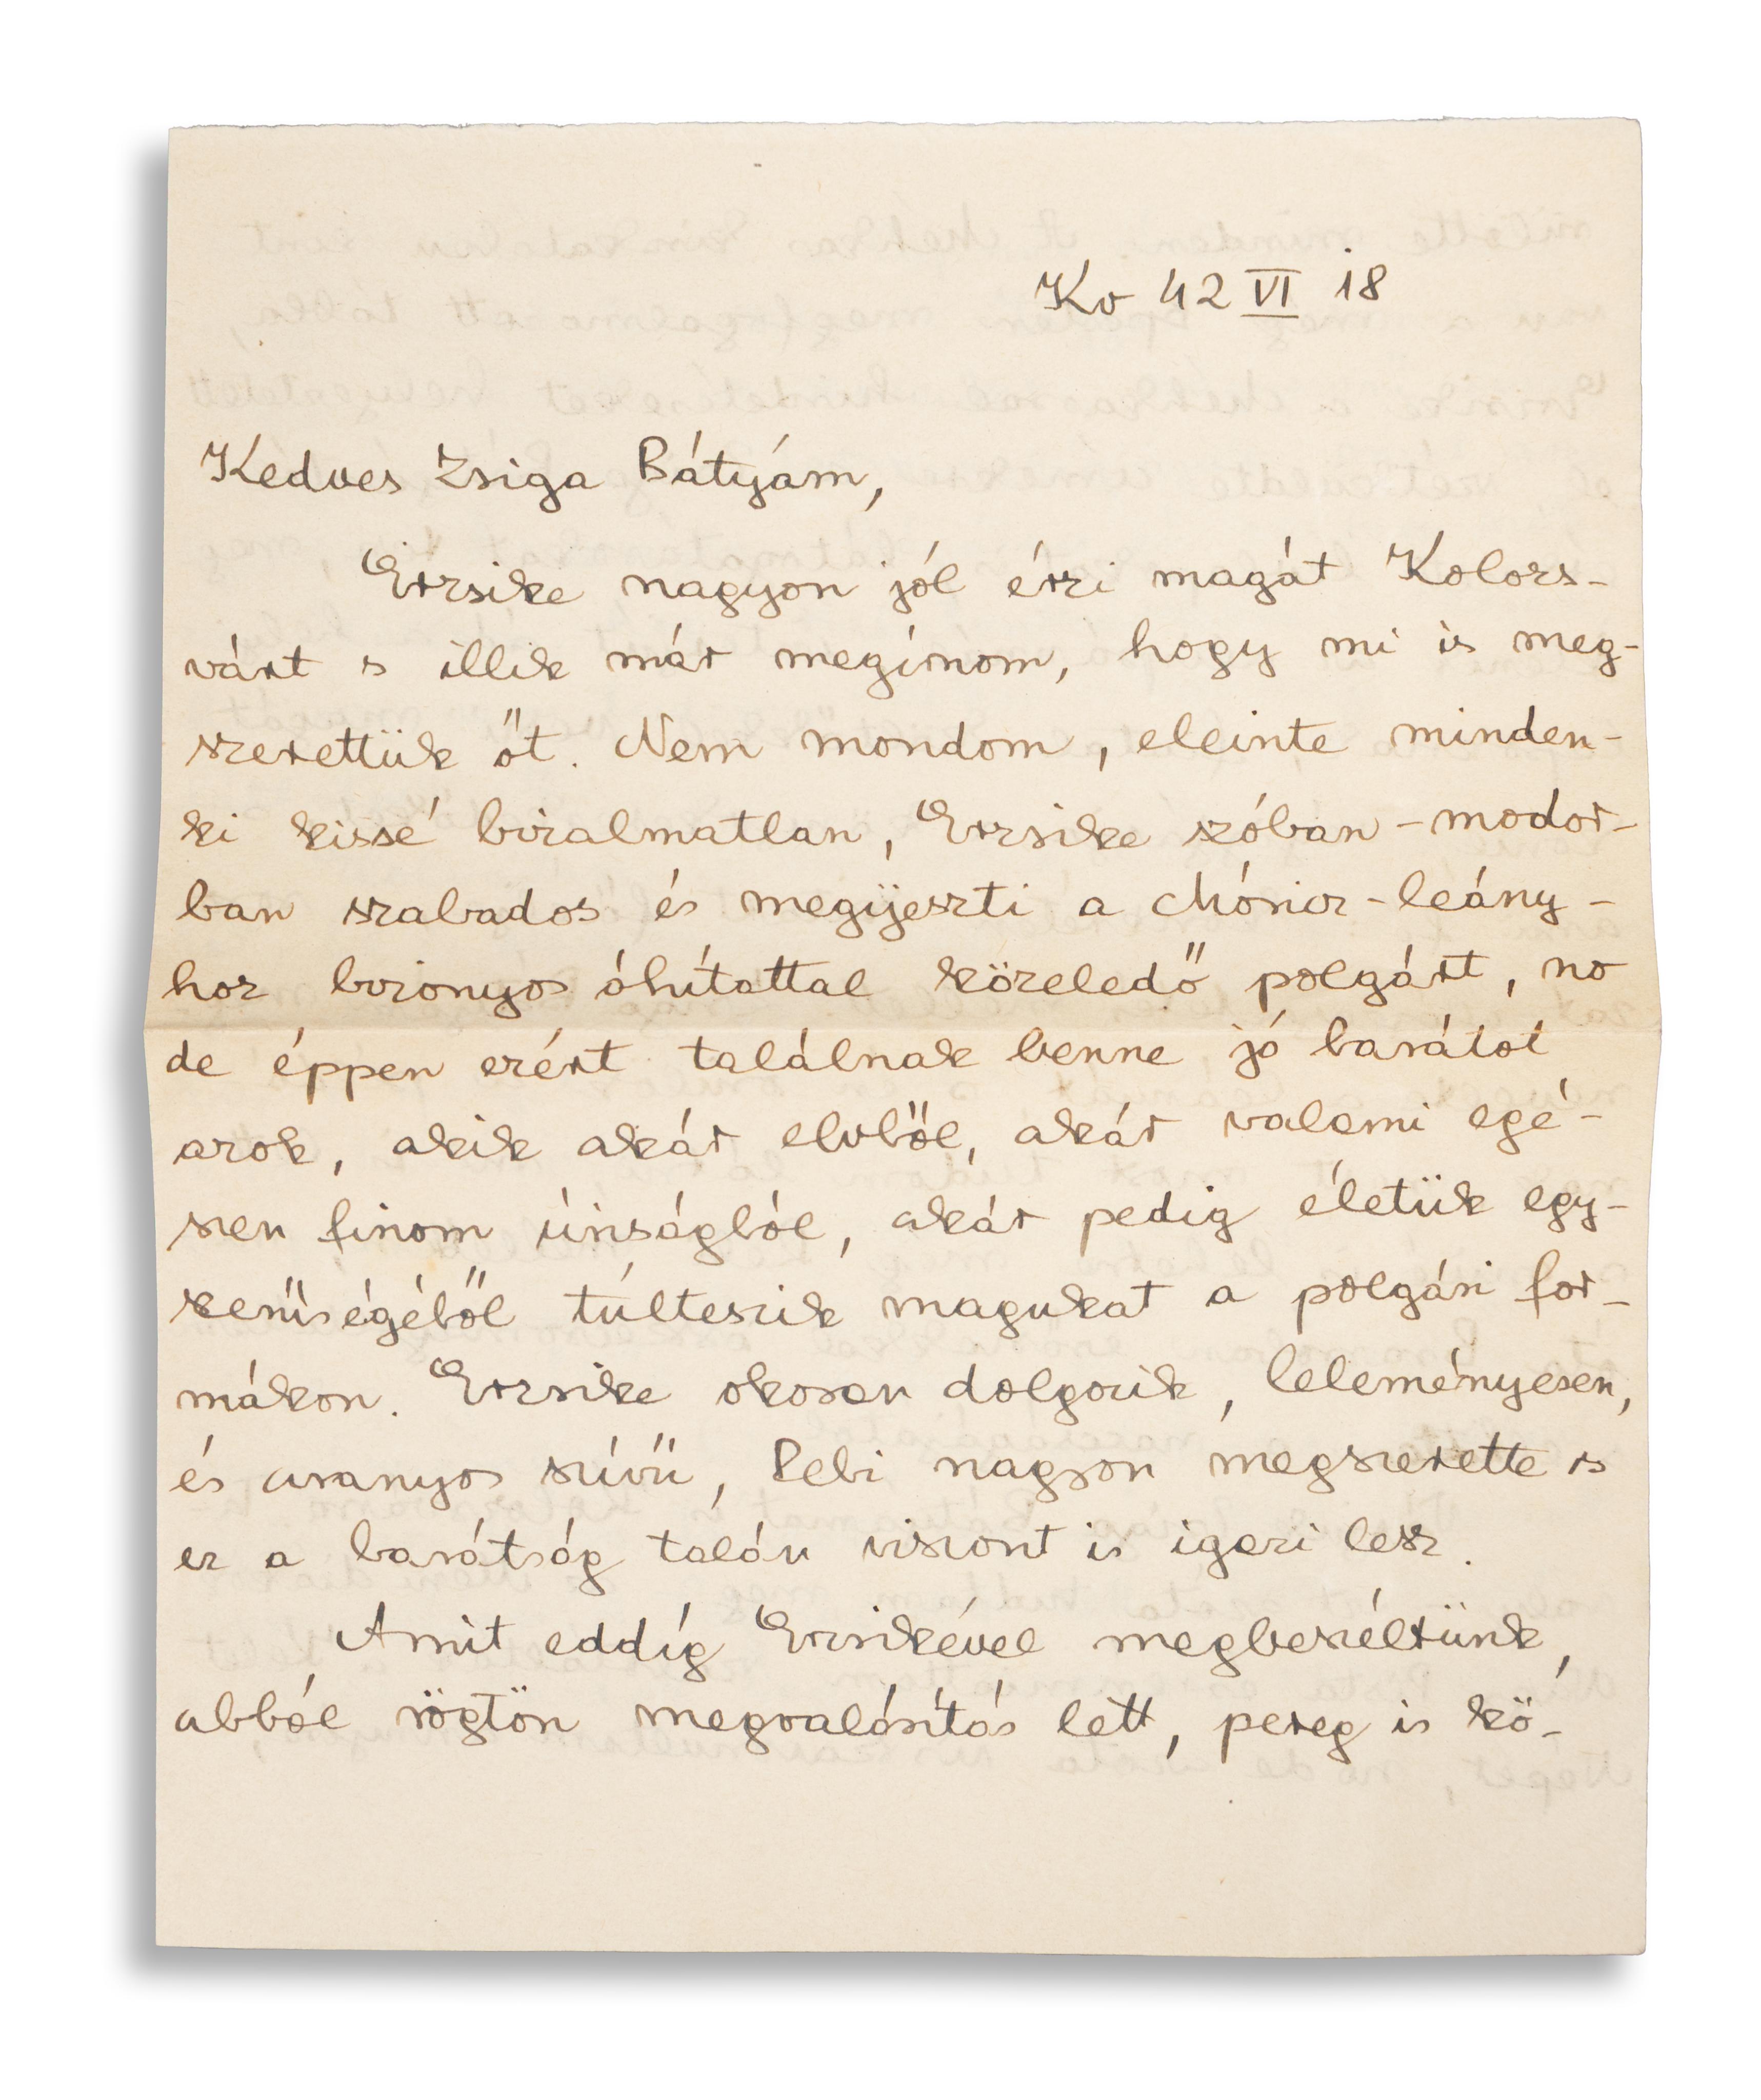 Kv 42 VI 18
Kedves Zsiga Bátyám,
Erzsike nagyon jól érzi magát Kolozs-
várt s illik már megírnom, hogy mi is meg-
szerettük őt. Nem mondom, eleinte minden-
ki kissé bizalmatlan, Erzsike szóban-modor-
ban szabados és megijeszti a Móricz-leány-
hoz bizonyos áhítattal közeledő polgárt, no
de éppen ezért találnak benne jó barátot
azok, akik akár elvből, akár valami egé-
szen finom úriságból, akár pedig életük egy-
szerűségéből túlteszik magukat a polgári for-
mákon. Erzsike okosan dolgozik, leleményesen,
és aranyos szívű, Pebi nagyon megszerette s
ez a barátság talán viszont is igazi lesz.
Amit eddíg Erzsikével megbeszéltünk,
abból rögtön megvalósítás lett, pereg is kö-